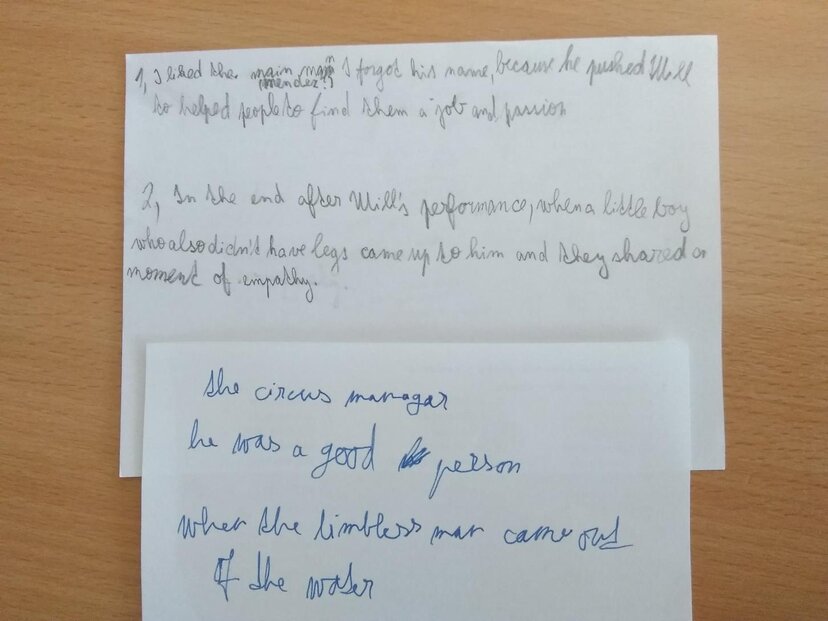 1, I liked the main man I forgot his name, because he pushed Will
(mendez?)
to helped people to find them a job and passion
2, In the end after Will's performance, when a little boy
who also didn't have legs came up to him and they shared a
moment of empathy.
the circus managar
he was a good person
when the limbless man came out
of the water